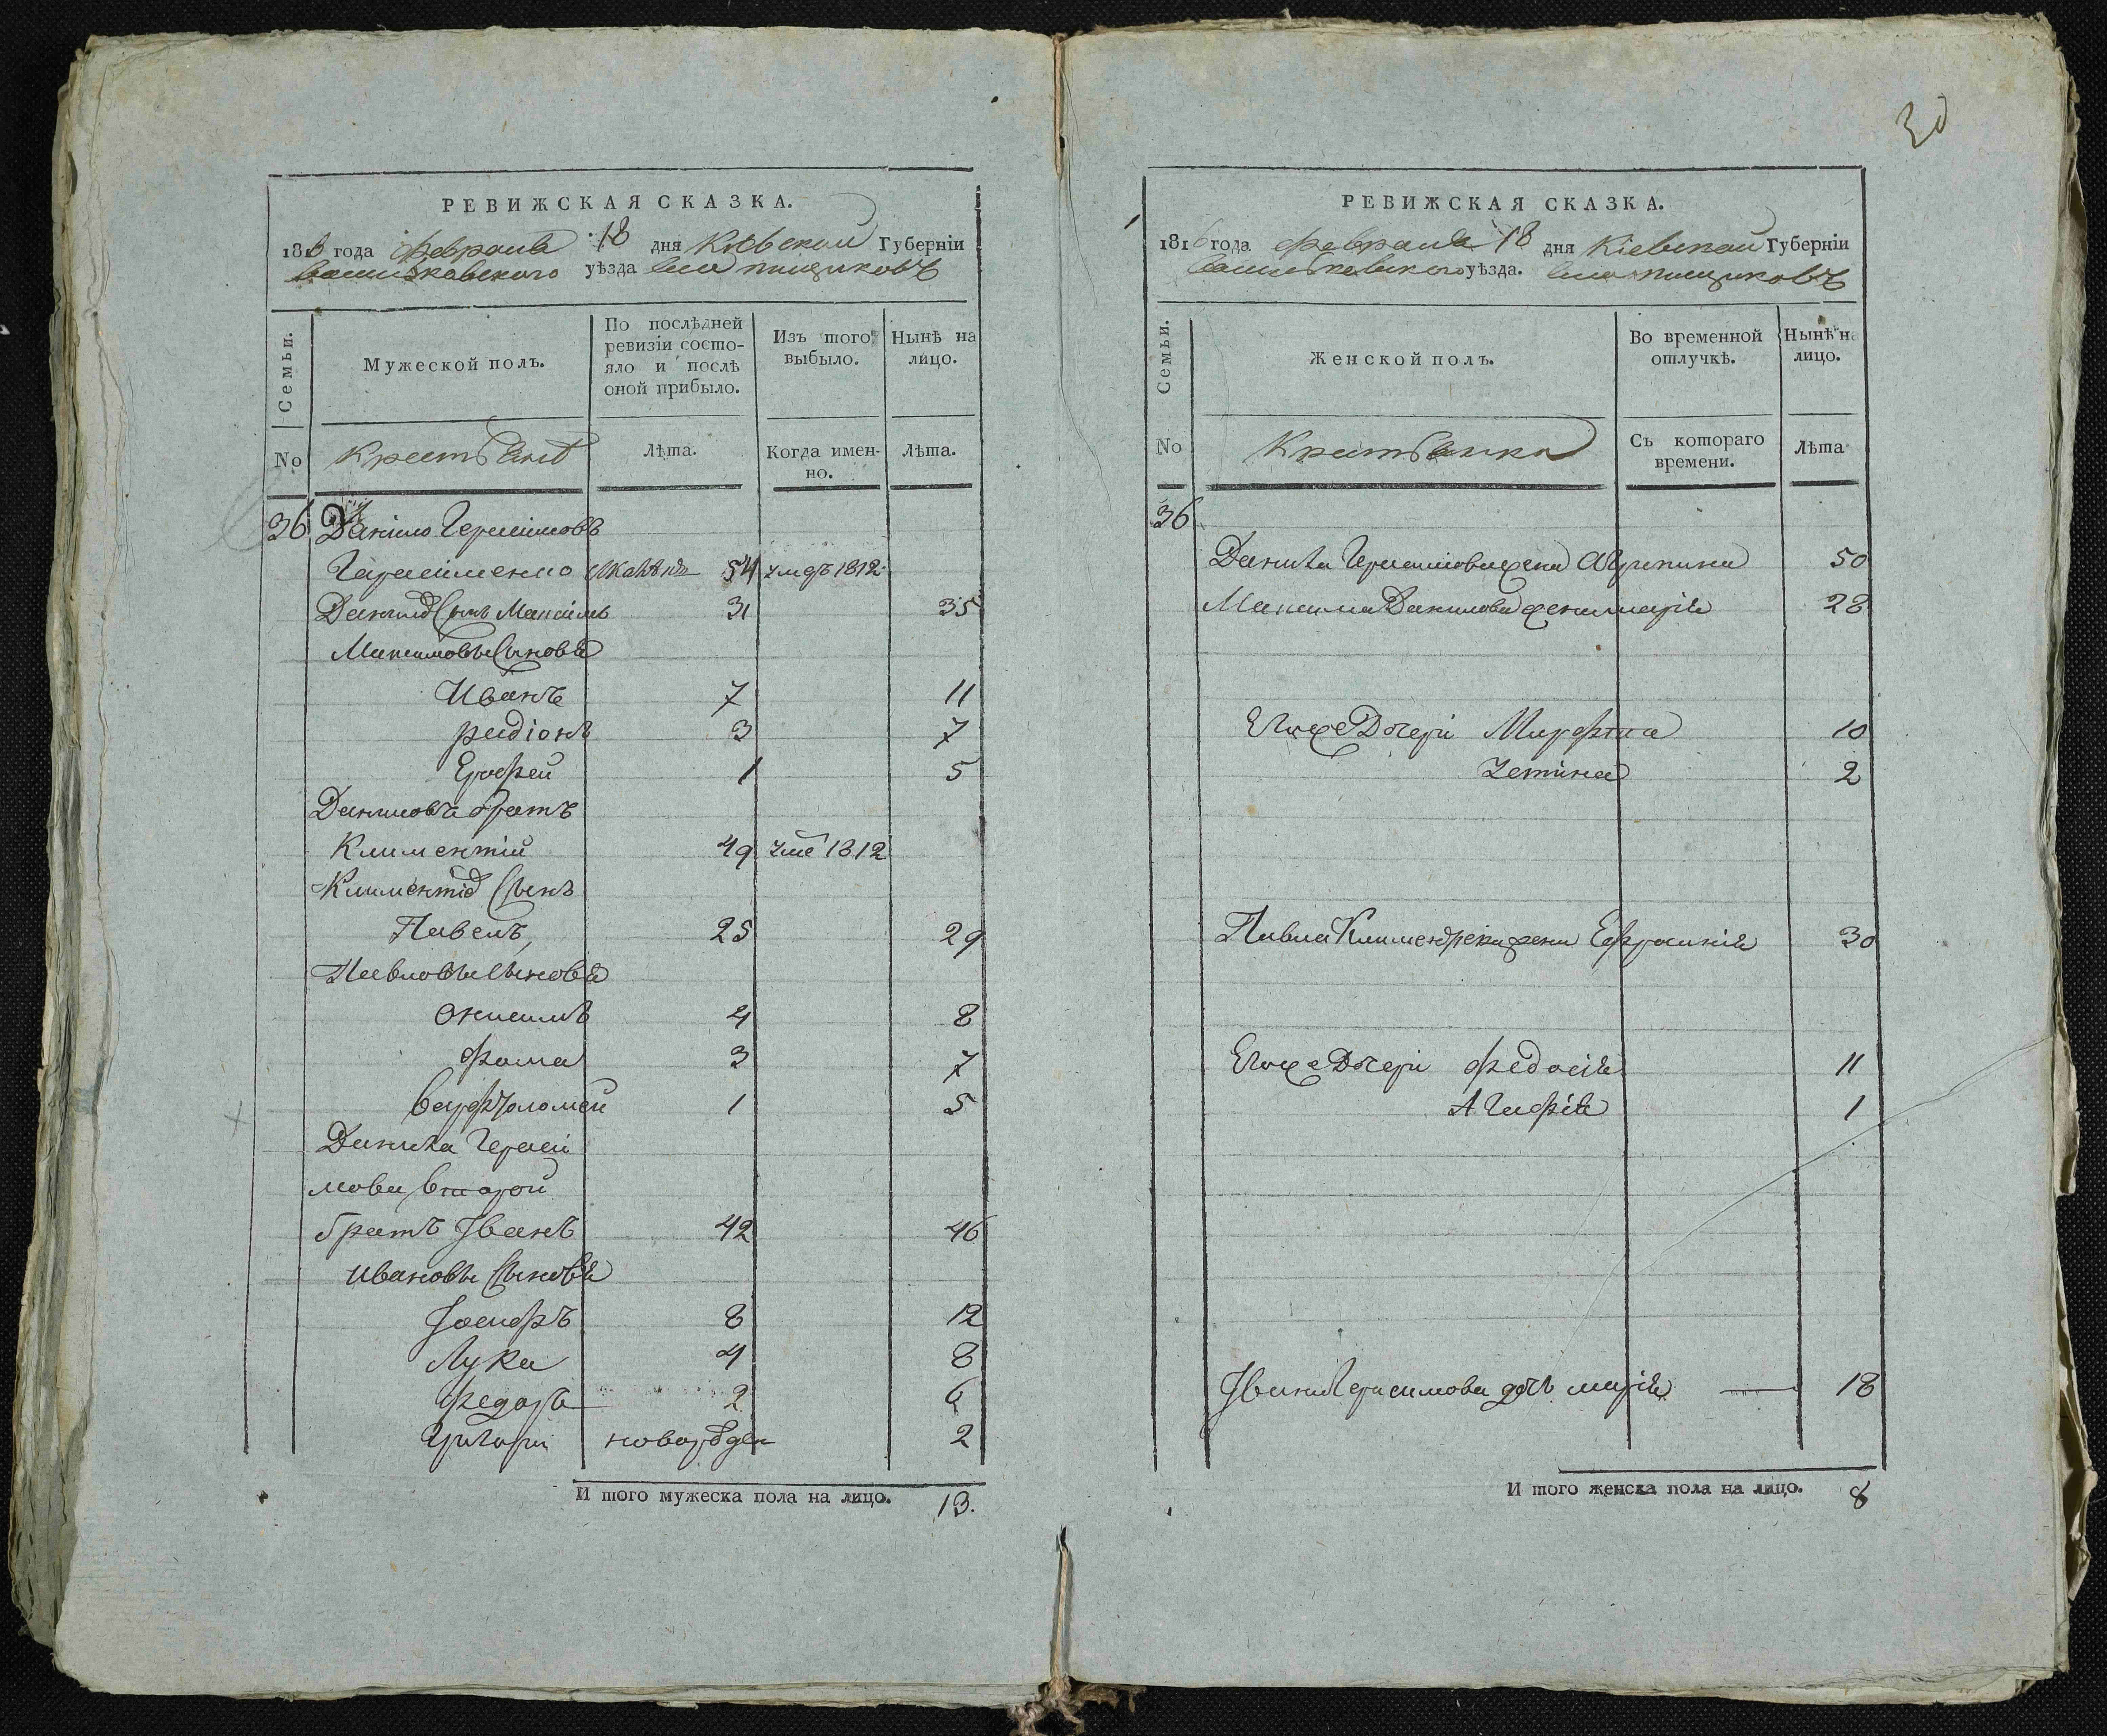 30
РЕВИЖСКАЯ СКАЗКА.
1816 года февраля 18 дня Кіевской Губерніи
Васильковского уѣзда села пищиковъ
Семьи.
Мужеской полъ.
По послѣдней ревизіи состояло и послѣ оной прибыло.
Изъ того выбыло.
Нынѣ на лицо.
No
Крестьянъ
Лѣта.
Когда именно.
Лѣта.
36 Данило Герасимовъ
Гарасименко 54 умеръ 1812
Данила Сынъ Максимъ 31 35
Максимовы Сыновья
Иванъ 7 11
радіонъ 3 7
Ерофей 1 5
Даниловъ братъ
Климентій 49 1812
Климентія Сынъ
Павелъ 25 29
Павловы Сыновья
Онисимъ 4 8
фома 3 7
варфоломей 1 5
Данила Гераси
мова второй
братъ Іванъ 42 46
ивановы Сыновья
Іосифъ 8 12
Лука 4 8
федоръ 2 6
Григори новорожден 2
И того мужеска пола на лицо. 13.
РЕВИЖСКАЯ СКАЗКА.
1816 года февраля 18 дня Кіевской Губерніи
Васильковского уѣзда. села пищиковъ
Семьи.
Женской полъ.
Во временной отлучкѣ.
Нынѣ на лицо.
No
Крестьянка
Съ котораго времени.
Лѣта
36
Данила Герасимова жена Агрипина 50
Максима Данилова жена марія 28
Егоже Дочери Марфа 10
2
Павла жена Ефрасинія 30
Егоже Дочери федосія 11
Агафія 1
Івана Герасимова дочь марія 18
И того женска пола на лицо. 8